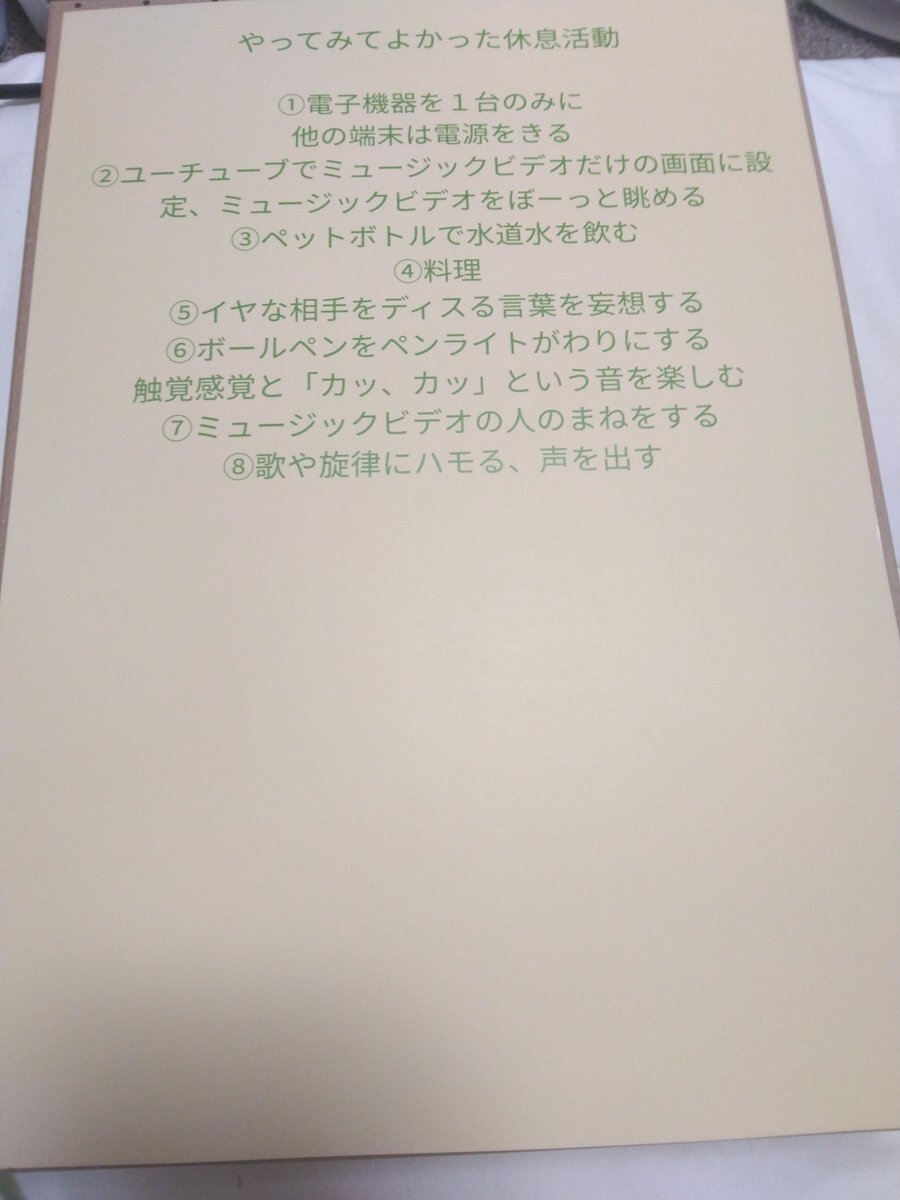 やってみてよかった休息活動
①電子機器を１台のみに
他の端末は電源をきる
②ユーチューブでミュージックビデオだけの画面に設
定、ミュージックビデオをぼーっと眺める
③ペットボトルで水道水を飲む
④料理
⑤イヤな相手をディスる言葉を妄想する
⑥ボールペンをペンライトがわりにする
触覚感覚と「カッ、カッ」という音を楽しむ
⑦ミュージックビデオの人のまねをする
⑧歌や旋律にハモる、声を出す